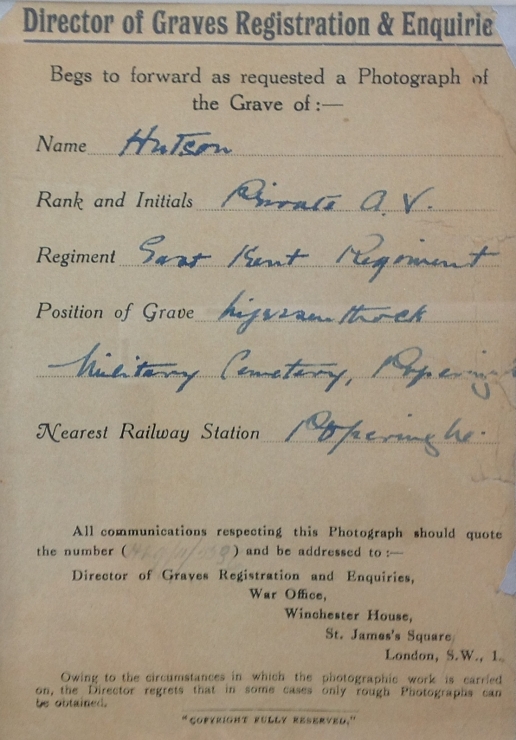 Director of Graves Registration & Enquirie
Begs to forward as requested a Photograph of
the Grave of :—
Name Hutson
Rank and Initials Private A. V.
Regiment East Kent Regiment
Position of Grave Lijssenthoek
Military Cemetary, Popering
Nearest Railway Station Poperinghe.
All communications respecting this Photograph should quote
the number ( ) and be addressed to :—
Director of Graves Registration and Enquiries,
War Office,
Winchester House,
St. James's Square,
London, S.W., 1.
Owing to the circumstances in which the photographic work is carried
on, the Director regrets that in some cases only rough Photographs can
be obtained.
"COPYRIGHT FULLY RESERVED."